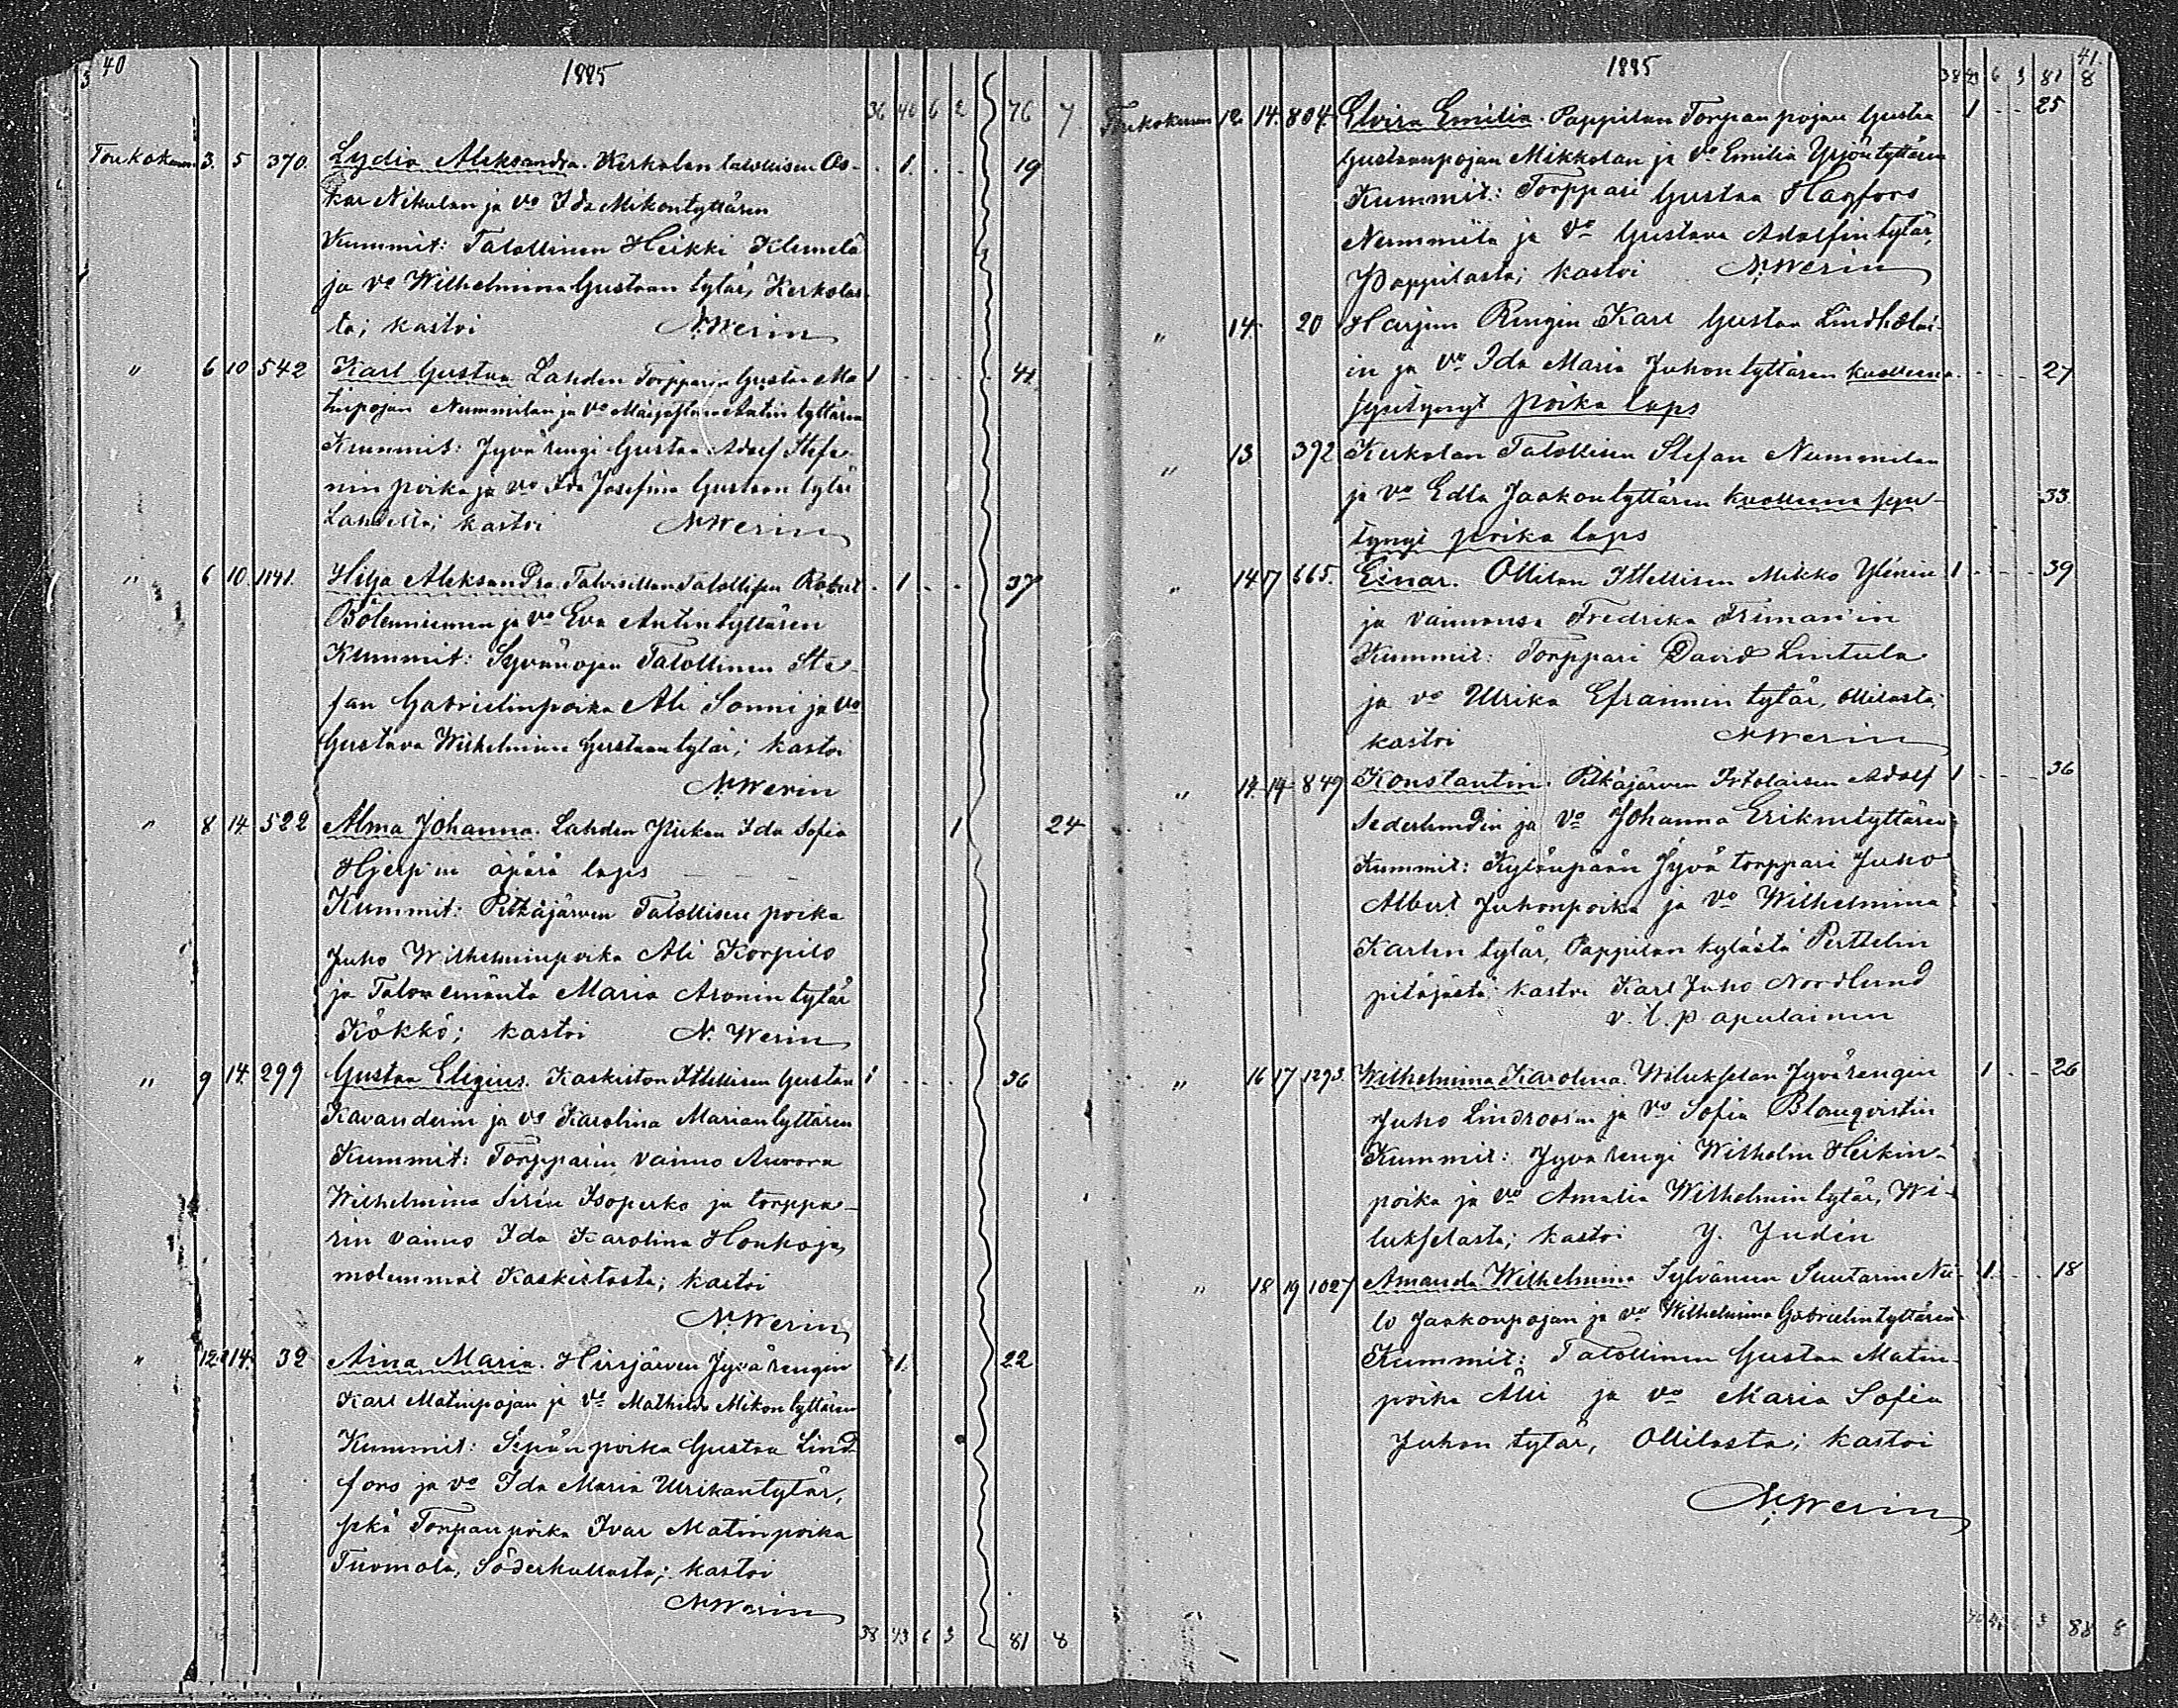 40
1885
36 40 6 2 76 7
Toukokuun 3. 5 370. Lydia Aleksandra. Kerkolan talollisen Os- 1. 19
kar Nikulan ja vo Ida Mikontyttären
Kummit: Talollinen Heikki Klemelä
ja vo Wilhelmina Gustaan tytär, Kerkolas-
ta; kastoi N. Werin
" 6 10 542 Karl Gustaa Lahden Torpparin Gustaa Ma- 1 41.
tinpojan Nummilan ja vo Antin tyttären
Kummit: Jyvä rengi Gustaa Adolf Stefa-
nin poika ja vo Ida Josefina Gustaan tytär
Lahdesta; kastoi N. Werin
" 6 10 1141. Hilja Aleksandra. Talollisen Robert 1 37
ja vo Eva Antintyttären
Kummit: Syvänojan Talollinen Ste-
fan Gabrielinpoika Ali Sonni ja vo
Gustava Wilhelmina Gustaantytär; kastoi
N. Werin
" 8 14. 522 Alma Johanna. Lahden Ida Sofia 1 24
Hjerp'in äpärä laps
Kummit: Pitkäjärven Talollisen poika
Juho Wilhelminpoika Ali Korpilo
ja Talon emäntä Maria Aronin tytär
Kökkö; kastoi N. Werin
" 9 14. 299 Gustaa Eligius. Kaskiston Itsellisen Gustaa 1 36
Kavanderin ja vo Karolina Mariantyttären
Kummit: Torpparin vaimo Aurora
Wilhelmina Sirén Isoperko ja torppa-
rin vaimo Ida Karolina Honkoja,
molemmat Kaskistosta; kastoi
N. Werin
" 12. 14. 32 Aina Maria. Hirsjärven Jyvä rengin 1. 22
Karl Matinpojan ja vo Mathilda Mikontyttären
Kummit: Sepän poika Gustaa Lind-
fors ja vo Ida Maria Ulrikantytär,
Torpan poika Ivar Matinpoika
Tuomola, Söderkullasta; kastoi
N. Werin
38 43 6 3 81 8
41.
1885
38 43 6 3 81 8
Toukokuun 12 14. 804. Elvira Emilia. Pappilan Torpan pojan Gustaa 1 25
Gustaanpojan Mikkolan ja vo Emilia Yrjöntyttären
Kummit: Torppari Gustaa Hagfors
Nummila ja vo Gustava Adolfin tytär,
Pappilasta; kastoi N. Werin
" 14. 20 Harjun Rengin Karl Gustaa Lindholm-
in ja vo Ida Maria Juhontyttären kuolleena 27
syntynyt poika laps
" 13 392 Kerkolan Talollisen Stefan Nummilan
ja vo Edla Jaakontyttären kuolleena syn- 33
tynyt poika laps
" 14 17 665. Einar. Ollilan Itsellisen Mikko Ylénin 1 39
ja vaimonsa Fredrika Friman'in
Kummit: Torppari David Lintula
ja vo Ulrika Efraimin tytär, Ollilasta;
kastoi N. Werin
" 14. 14 849 Konstantin. Pitkäjärven Adolf 1 36
Sederlundin ja vo Johanna Erikintyttären
Kummit: Kylänpään Jyvä torppari Juho
Albert Juhonpoika ja vo Wilhelmina
Karlin tytär, Pappilan kylästä Perttelin
pitäjästä; kastoi Karl Juho Nordlund
v. t. p apulainen
" 16 17 1293. Wilhelmina Karolina. Wilukselan Jyvä rengin 1 26
Juho Lindroos'in ja vo Sofia Blomqvistin
Kummit: Jyvä rengi Wilhelm Heikin-
poika ja vo Amalia Wilhelmin tytär, Wi-
lukselasta; kastoi Y. Judén
" 18 19 1027 Amanda Wilhelmina Sylvänän Suutarin Nii- 1. 18
lo Jaakonpojan ja vo Wilhelmina Gabrielintyttären
Kummit: Talollinen Gustaa Matin-
poika Alli ja vo Maria Sofia
Juhon tytär, Ollilasta; kastoi
N. Werin
88 8